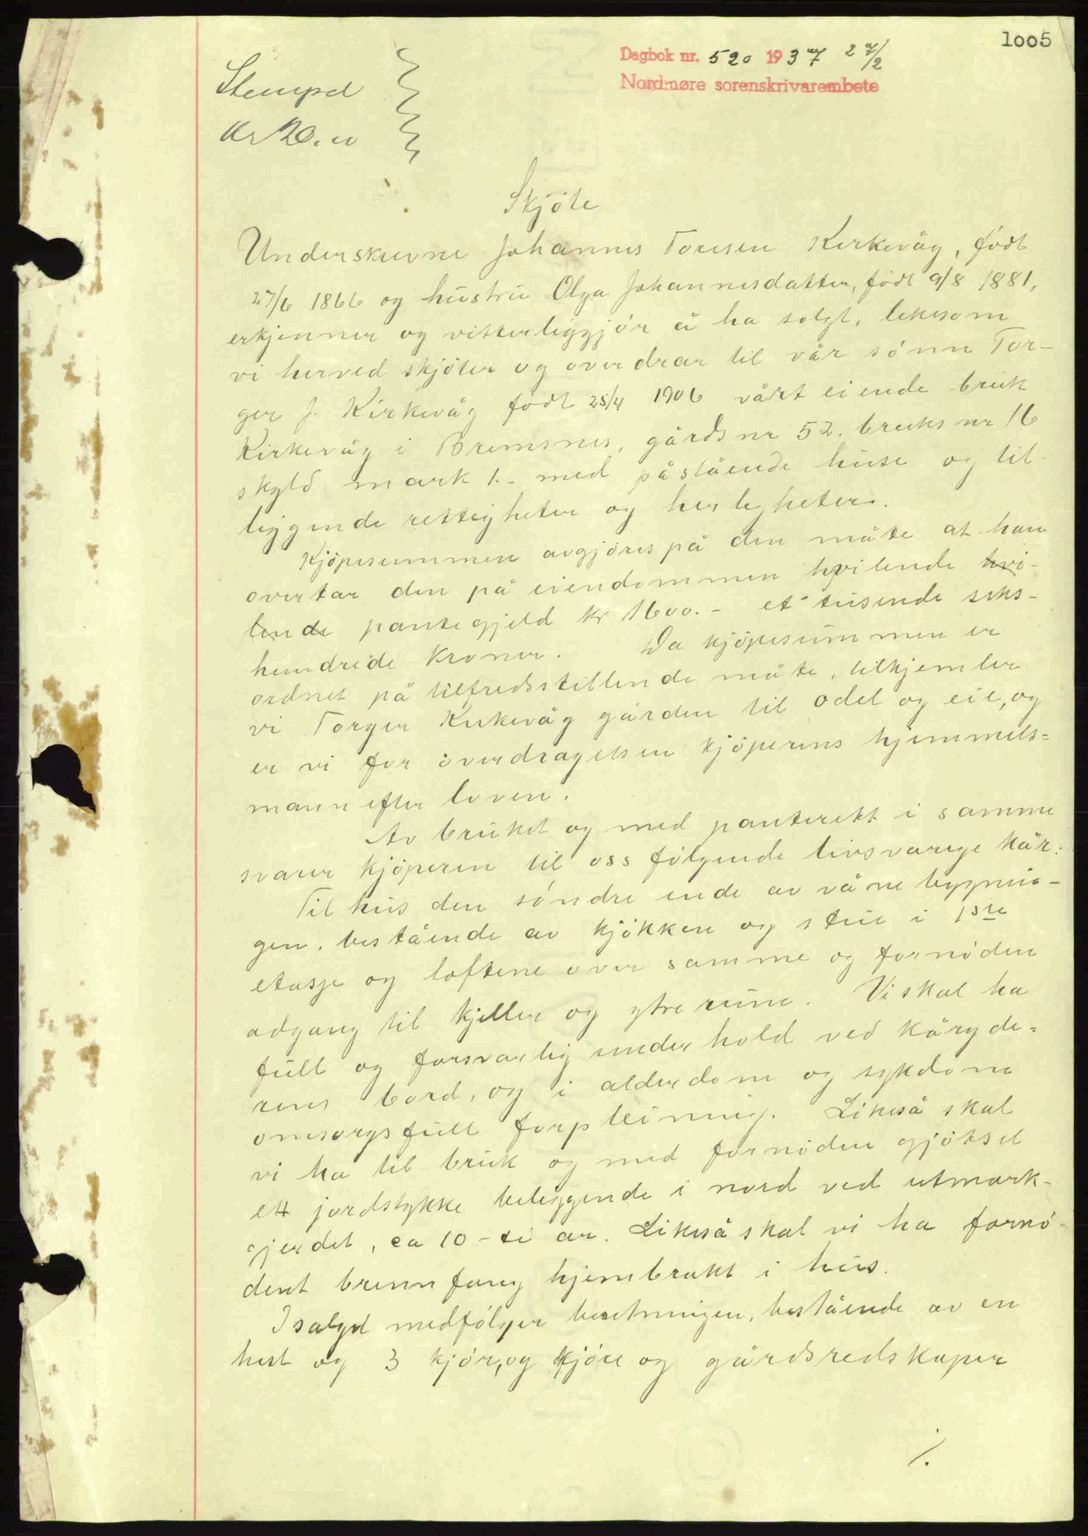 1005
Dagbok nr. 520 1937 27/2
Nordmøre sorenskrivarembete
Stempel
Kr 20.00
Skjöte
Underskrevne Johannes Toresen Kirkevåg, födt
27/6 1866 og hustru Olga Johannesdatter, födt 9/8 1881,
erkjenner og vitterleggjör å ha solgt, likesom
vi herved skjöter og overdrar til vår sönn Tor-
ger J. Kirkevåg födt 25/4 1906 vårt eiende bruk
Kirkevåg i Bremsnes, gårds nr 52. bruks nr 16
skyld mark 1.- med påstående huse og til-
liggende rettigheter og herligheter.
Kjöpesummen avgjöres på den måte at han
overtar den på eiendommen hvilende hvi-
lende pantegjeld kr 1600.- et tusende seks-
hundrede kroner. Da kjöpesummen er
ordnet på tilfredsstillende måte, tilkjemler
vi Torger Kirkevåg gården til odel og eie, og
er vi for overdragelsen kjöperens hjemmels=
mann efter loven.
Av bruket og med panterett i samme
svarer kjöperen til oss fölgende livsvarige kår:
Til hus den söndre ende av våne bygnin-
gen, bestående av kjökken og stue i 1ste
etasje og loftene over samme og fornöden
adgang til kjeller og ytre rume. Vi skal ha
full og forsvarlig underhold ved kåryde=
rens bord, og i alderdom og sykdom
omsorgsfull forpleining. Likeså skal
vi ha til bruk og med fornöden gjötsel
ett jordstykke beliggende i nord ved utmark-
gjerdet, ca 10 - ti ar. Likeså skal vi ha fornö-
dent brennfang hjembrakt i hus.
I salget medfölger besetningen, bestående av en
hest og 3 kjör, og kjöre og gårdsredskaper
./.